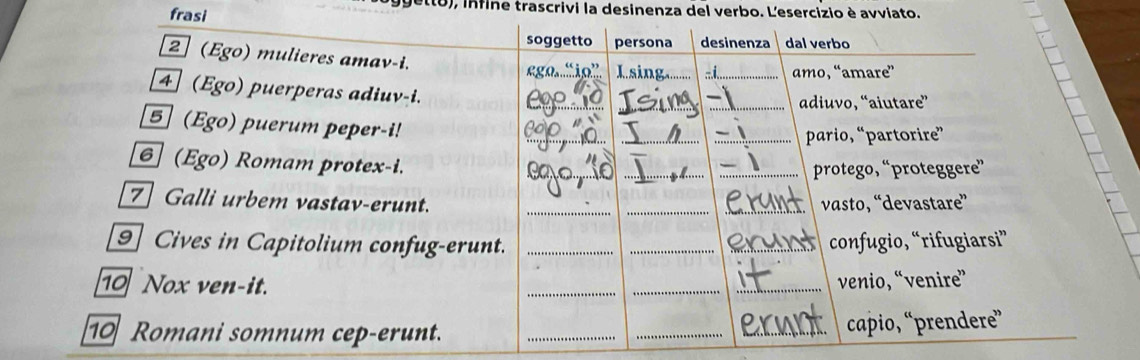 infine trascrivi la desinenza del verbo. L'esercizio è avviato.
frasi soggetto persona desinenza dal verbo
2 (Ego) mulieres amav-i. ego, “io” I sing. -i amo, “amare”
4 (Ego) puerperas adiuv-i. ego "io Ising -i adiuvo, “aiutare”
5 (Ego) puerum peper-i! ego, "io" I " -i pario, “partorire”
6 (Ego) Romam protex-i. ego, "io I " -i protego, “proteggere”
7 Galli urbem vastav-erunt. erunt vasto, “devastare”
9 Cives in Capitolium confug-erunt. erunt confugio, “rifugiarsi”
10 Nox ven-it. it venio, “venire”
10 Romani somnum cep-erunt. erunt capio, “prendere”